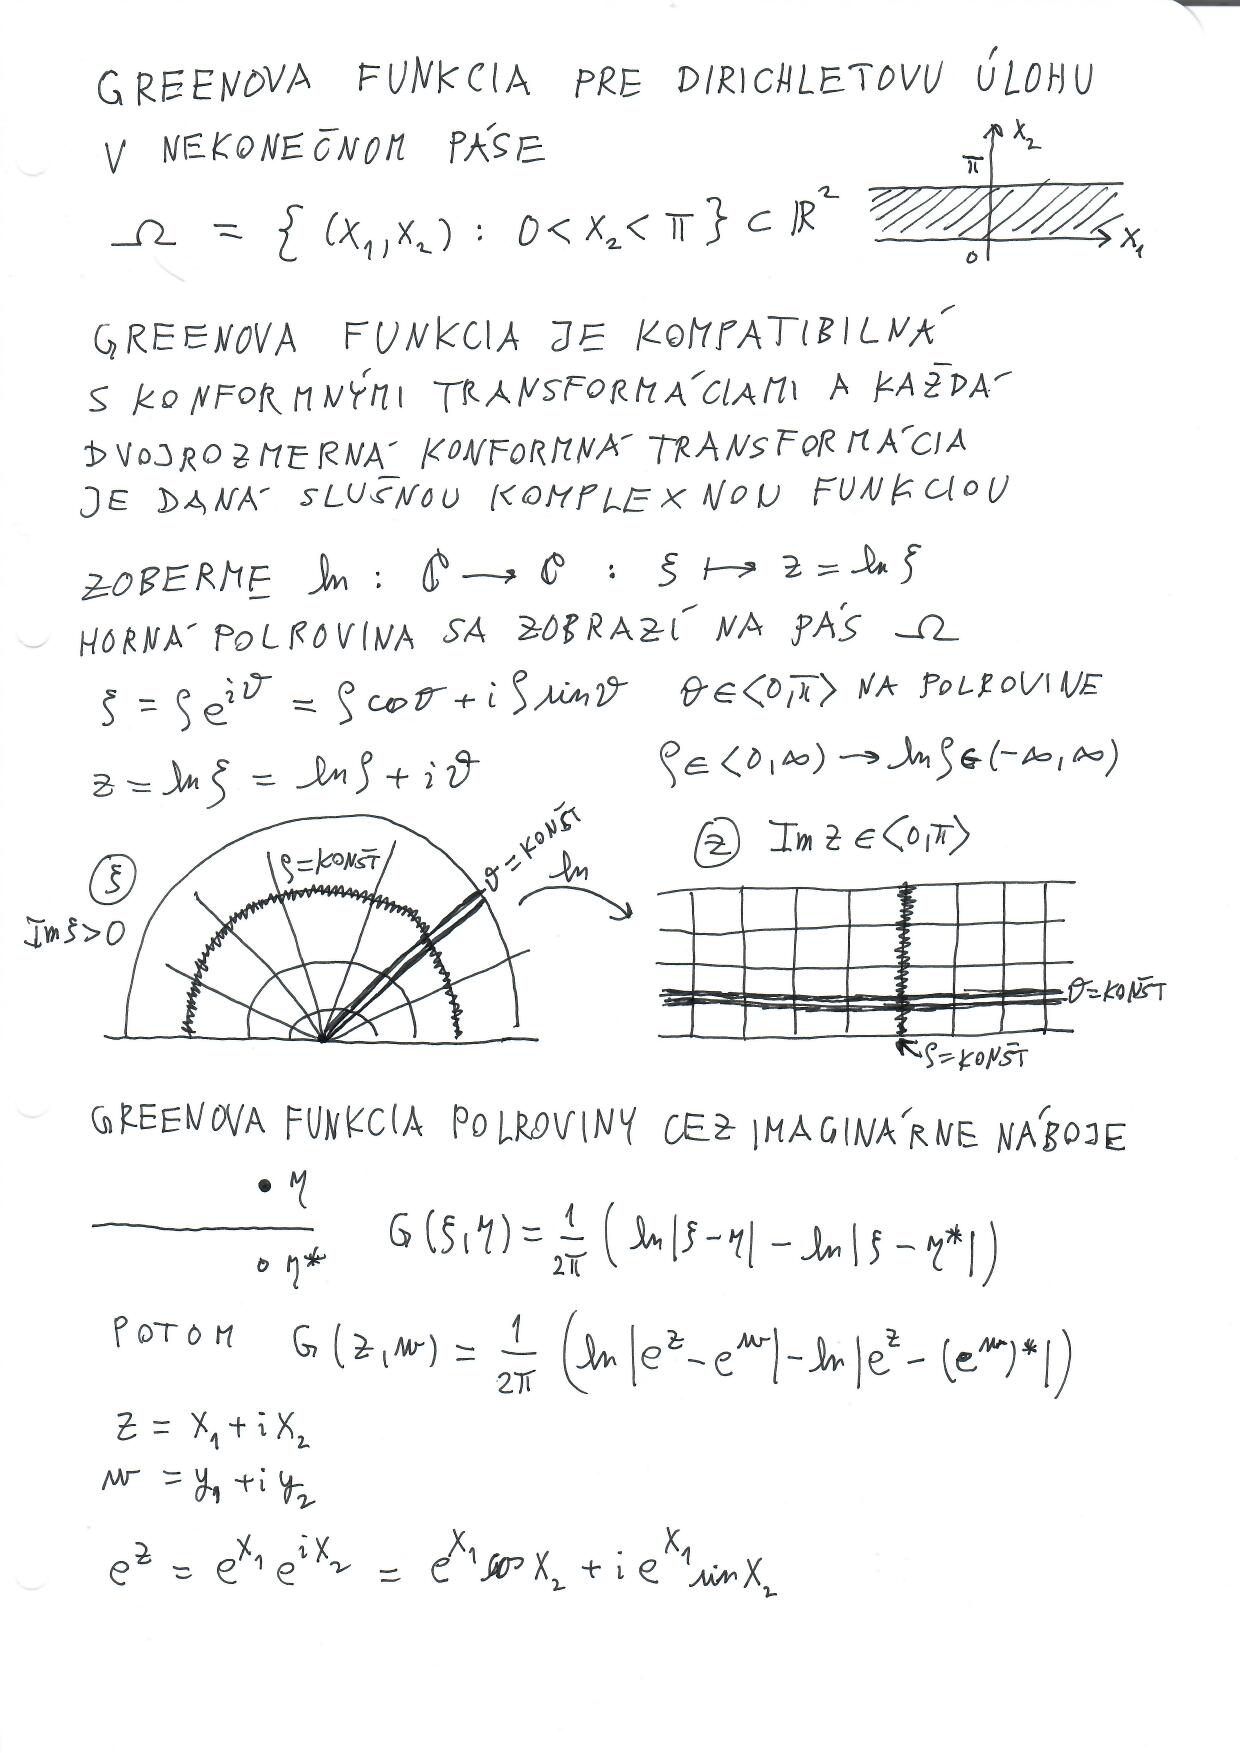 GREENOVA FUNKCIA PRE DIRICHLETOVU ÚLOHU
V NEKONEČNOM PÁSE
Ω = { (x₁,x₂) : 0 < x₂ < π } ⊂ ℝ²
x₂
π
0
x₁
GREENOVA FUNKCIA JE KOMPATIBILNÁ
S KONFORMNÝMI TRANSFORMÁCIAMI A KAŽDÁ
DVOJROZMERNÁ KONFORMNÁ TRANSFORMÁCIA
JE DANÁ SLUŠNOU KOMPLEXNOU FUNKCIOU
ZOBERME ln : ℂ → ℂ : ξ ↦ z = ln ξ
HORNÁ POLROVINA SA ZOBRAZÍ NA PÁS Ω
ξ = ρe^{iϑ} = ρ cos ϑ + i ρ sin ϑ θ ∈ <0,π> NA POLROVINE
z = ln ξ = ln ρ + i ϑ ρ ∈ <0,∞) → ln ρ ∈ (-∞,∞)
ξ
Im ξ > 0
ρ = KONŠT
ϑ = KONŠT
ln
z Im z ∈ <0,π>
ϑ = KONŠT
ρ = KONŠT
GREENOVA FUNKCIA POLROVINY CEZ IMAGINÁRNE NÁBOJE
η
η*
G(ξ,η) = 1/2π ( ln|ξ-η| - ln|ξ-η*| )
POTOM G(z,w) = 1/2π ( ln|e^z - e^w| - ln|e^z - (e^w)*| )
z = x₁ + i x₂
w = y₁ + i y₂
e^z = e^{x₁} e^{i x₂} = e^{x₁} cos x₂ + i e^{x₁} sin x₂